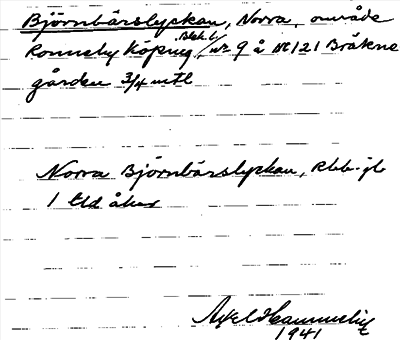 Björnbärslyckan, Norra, område
Ronneby Köping, Blek.l. nr 9 å Nt 121 Bräkne
gården 3/4 mtl
Norra Björnbärslyckan,
1 tld åker
Axel
1941